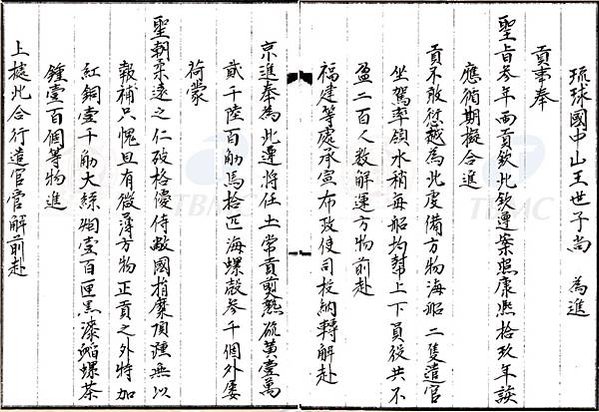 琉球國中山王世子尚　為進
貢事奉
聖旨叁年兩貢欽此欽遵案照康熙拾玖年該
應循期擬合進
貢不敢愆越為此度備方物海船二隻遣官
坐駕率領水稍每船均幫上下員役共不
盈二百人數解運方物前赴
福建等處承宣布政使司投納轉解赴
京進奉為此遵將任土常貢煎熟硫黃壹萬
貳千陸百觔馬拾匹海螺殼叁千個外屢
荷蒙
聖朝柔遠之仁破格優待敝國捐糜頂踵無以
報補只愧且有微薄方物正貢之外特加
紅銅壹千觔大絲烟壹百匣黑漆螺茶
鍾壹百個等物進
上擬此合行遣官管解前赴
TBMC